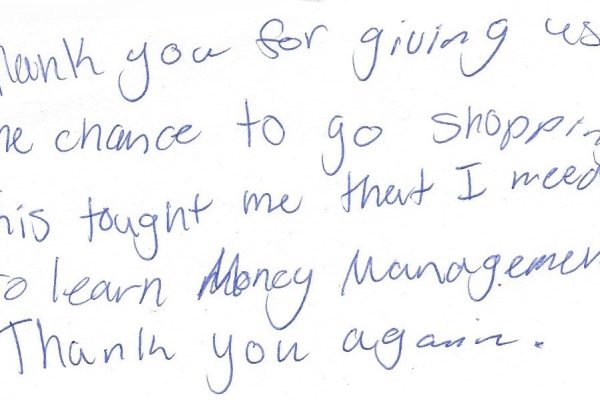 hank you for giving us
he chance to go shopping
his tought me that I need
to learn Money Managemen
Thank you again.